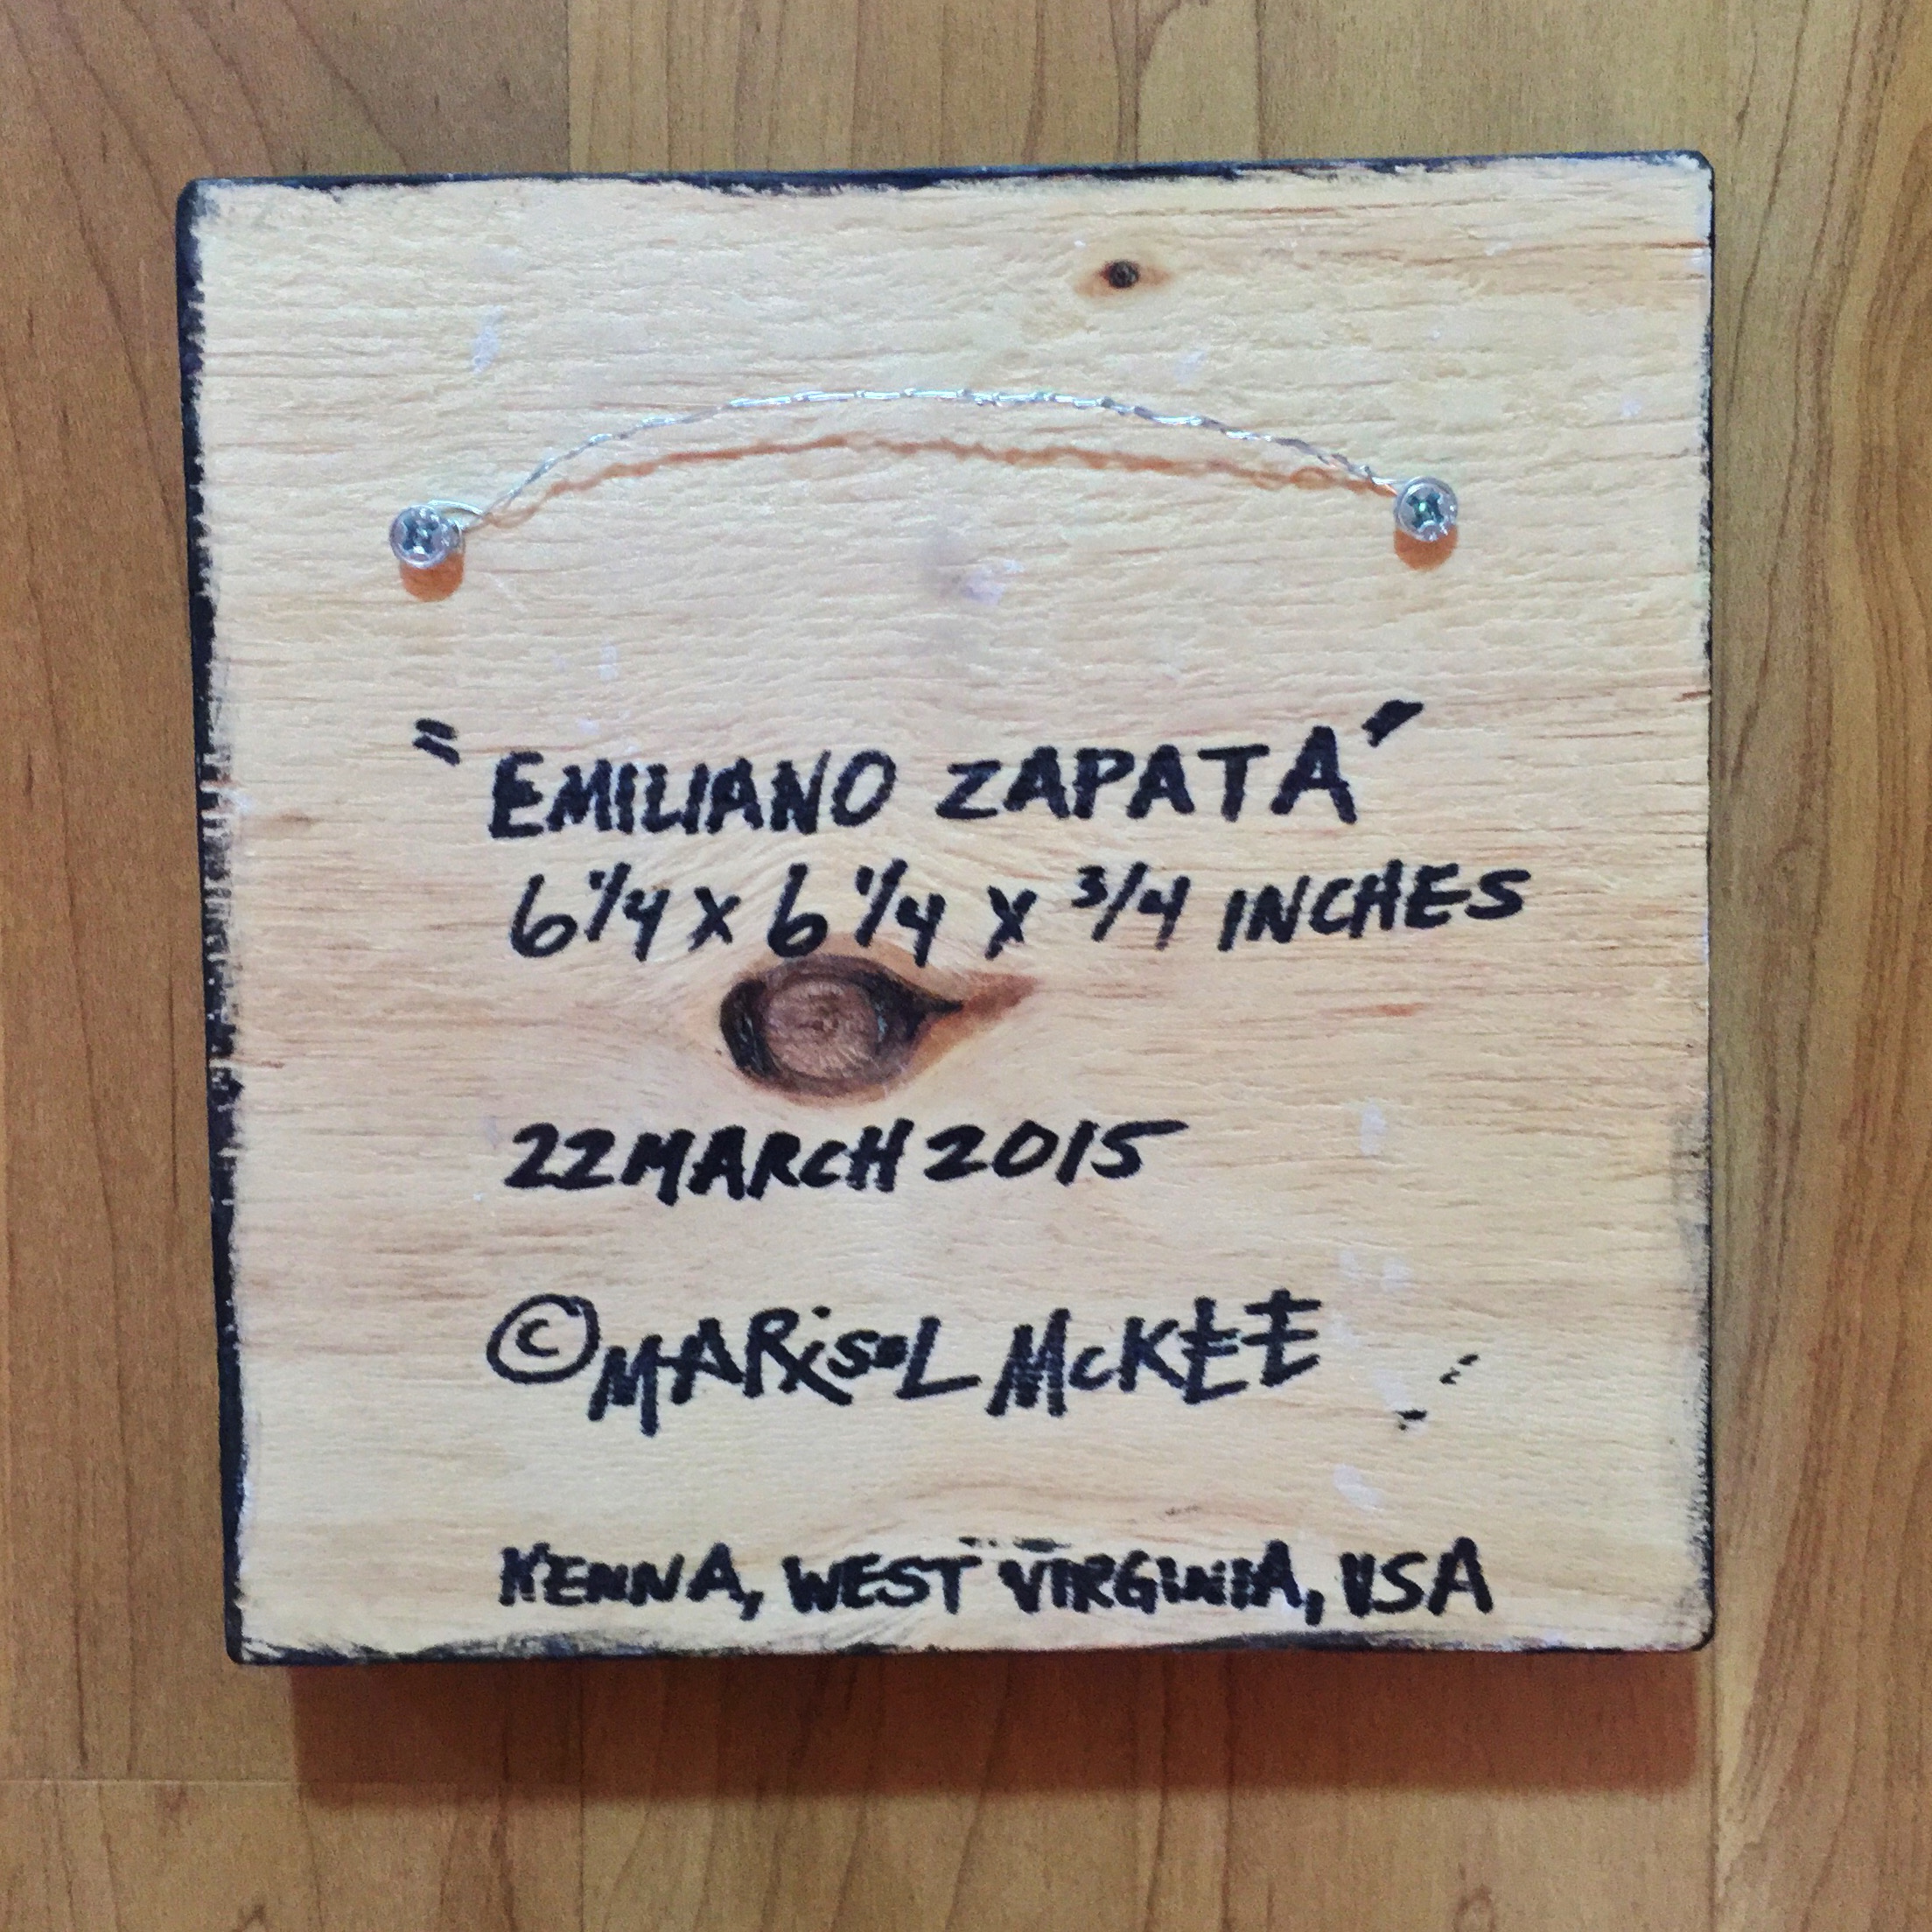 "EMILIANO ZAPATA"
6 1/4 X 6 1/4 X 3/4 INCHES
22 MARCH 2015
© MARiSOL McKEE
KENNA, WEST VIRGINIA, USA